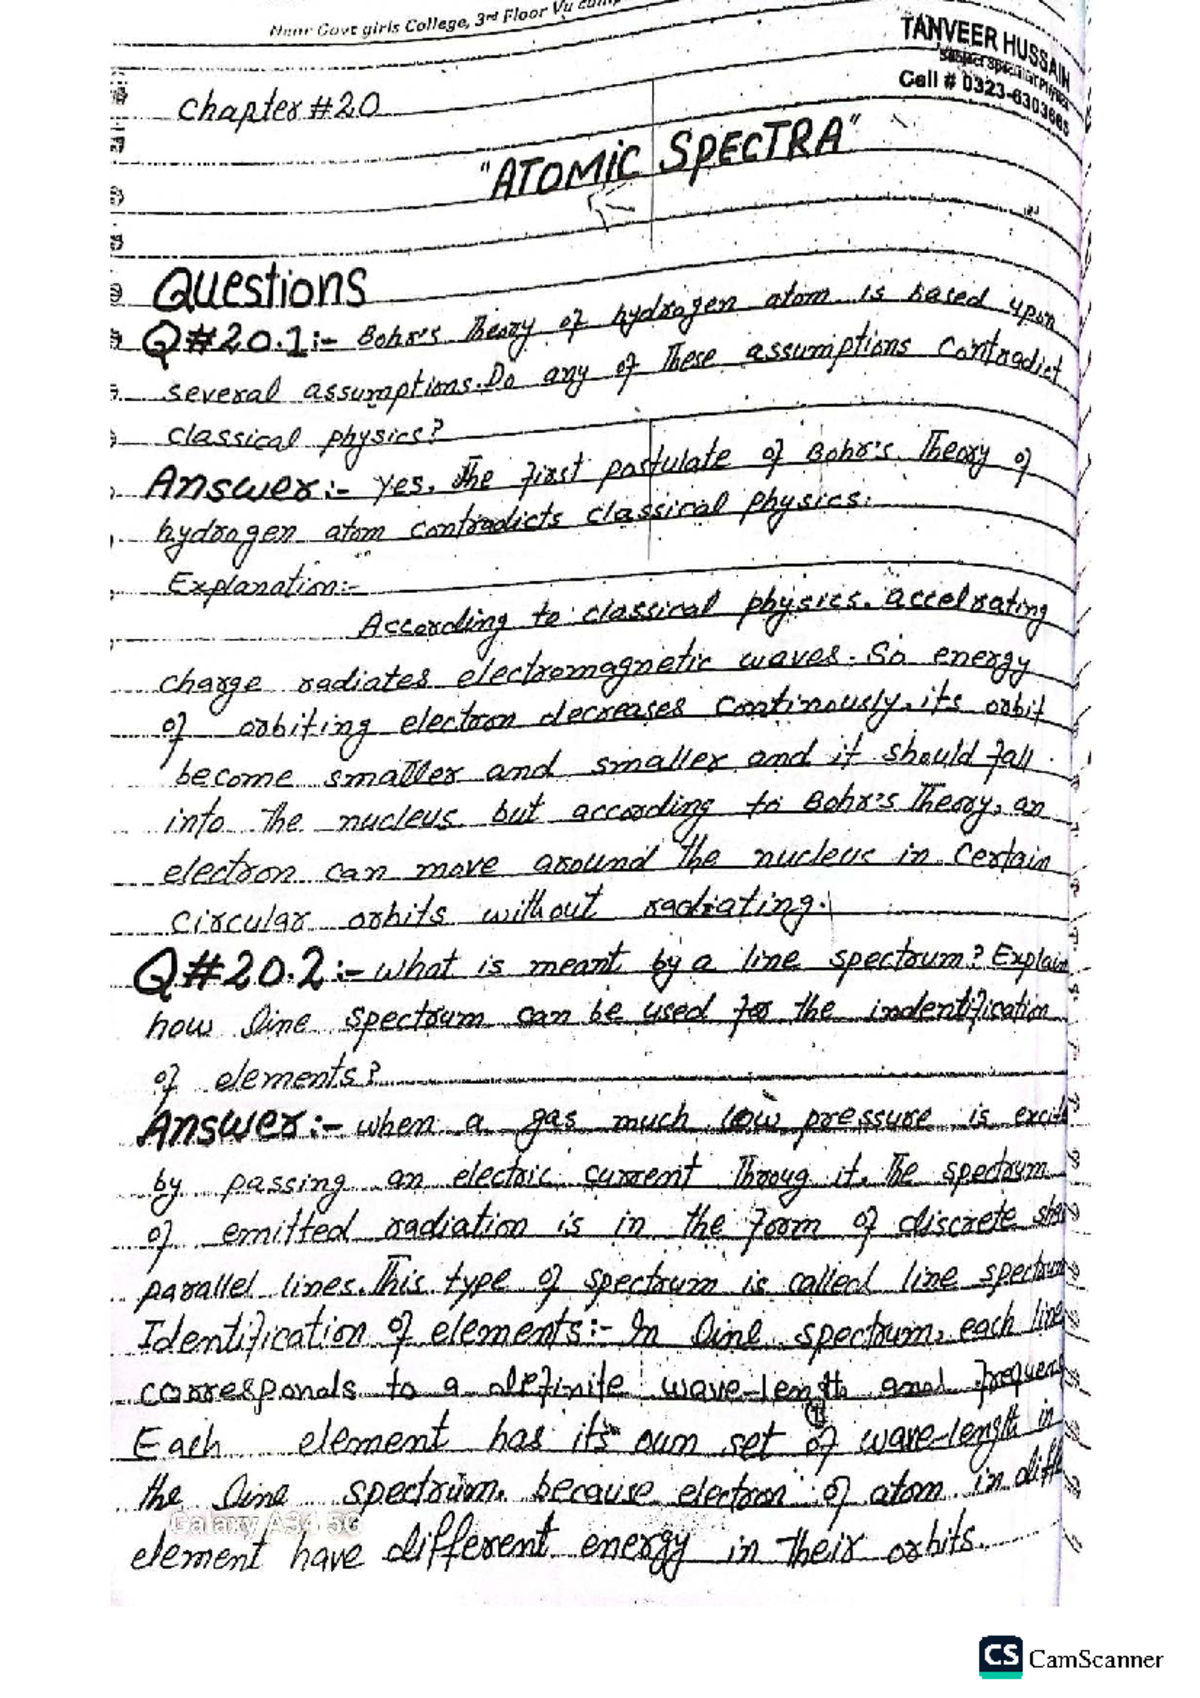 Near Govt girls College, 3rd Floor Vu
TANVEER HUSSAIN
Subject Specialist Physics
Cell # 0323-6303665
Chapter #20
"ATOMIC SPECTRA"
Questions
Q#20.1:- Bohr's Theory of hydrogen atom is based upon
several assumptions. Do any of These assumptions contradict
classical physics?
Answer:- Yes. The first postulate of Bohr's Theory of
hydrogen atom contradicts classical physics.
Explanation:-
According to classical physics. accelrating
charge radiates electromagnetic waves. So energy
of orbiting electron decreases continously. its orbit
become smaller and smaller and it should fall
into The nucleus but according to Bohr's Theory, an
electron can move around The nucleus in certain
circular orbits without radiating.
Q#20.2:- What is meant by a line spectrum? Explain
how line spectrum can be used for the indentification
of elements?
Answer:- when a gas much low pressure is
by passing an electric current Throug it. The spectrum
of emitted radiation is in the form of discrete
parallel lines. This type of spectrum is called line
Identification of elements:- In line spectrum, each line
corresponds to a definite wave-length and
Each element has its own set of wave-length in
the line spectrum. because electron of atom in
element have different energy in Their orbits.
Galaxy A34 5G
CS CamScanner